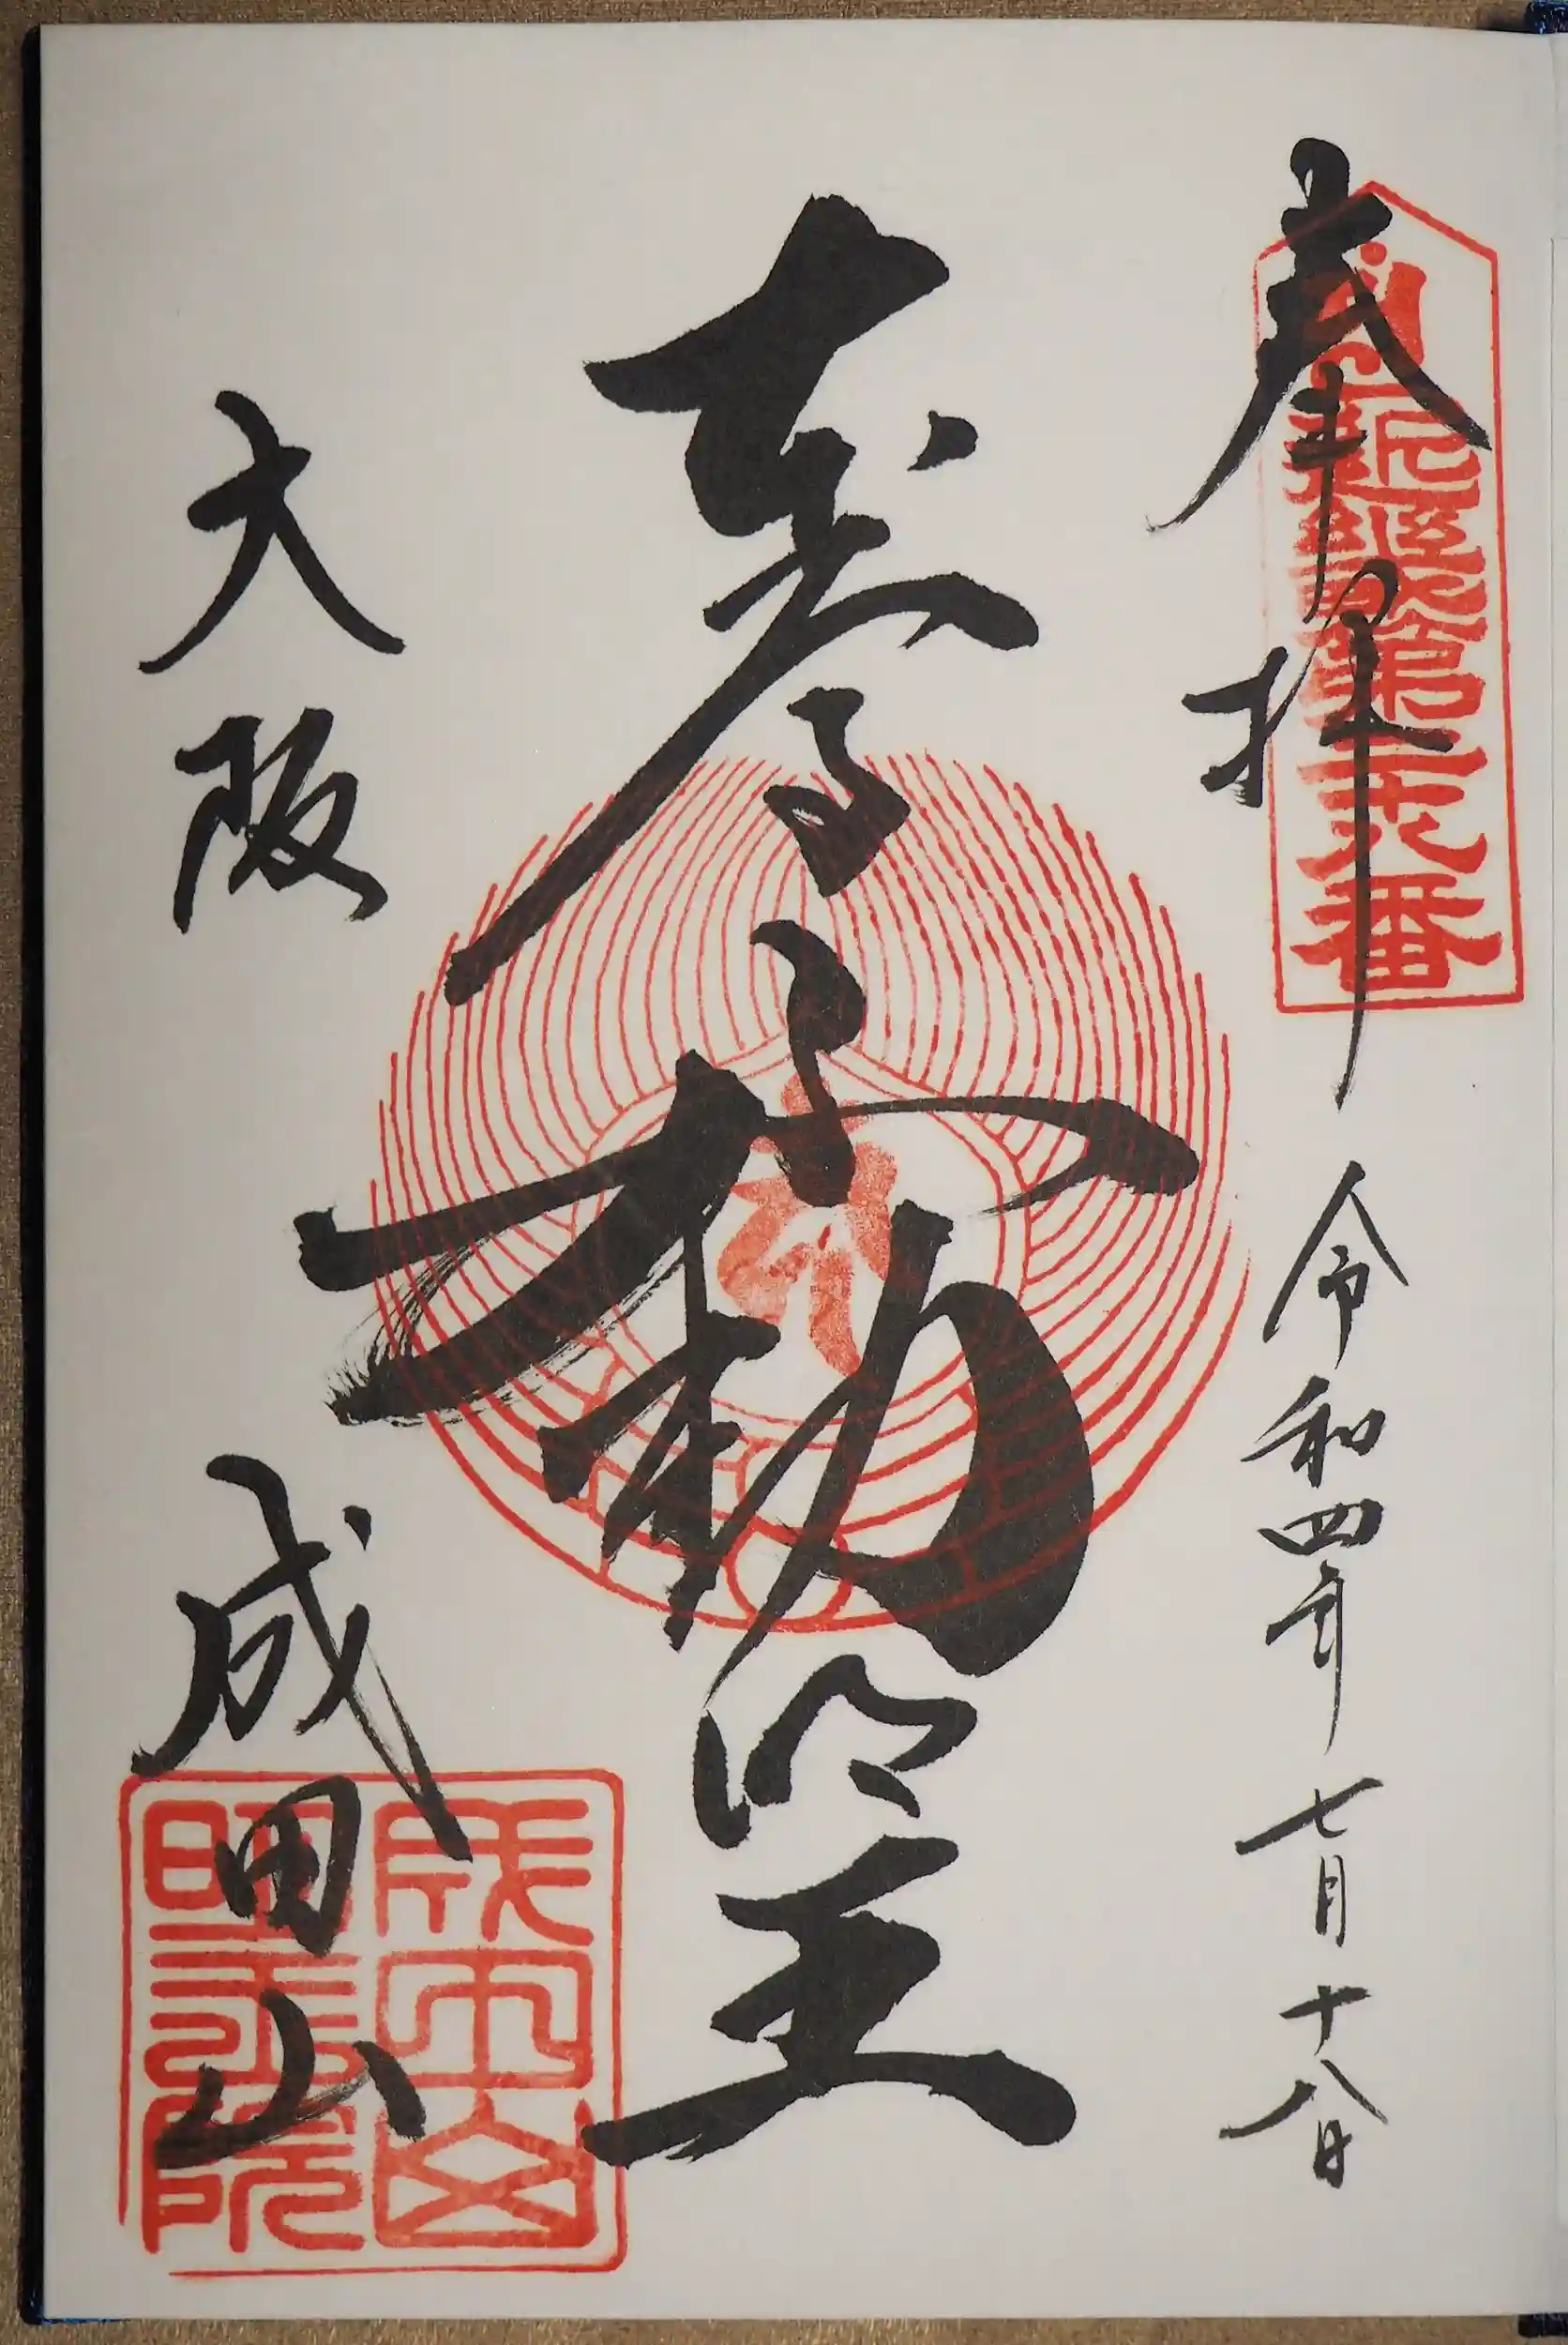 奉拝 令和四年七月十八日
近畿第二十八番
不動明王
大阪 成田山
成田山
明王院